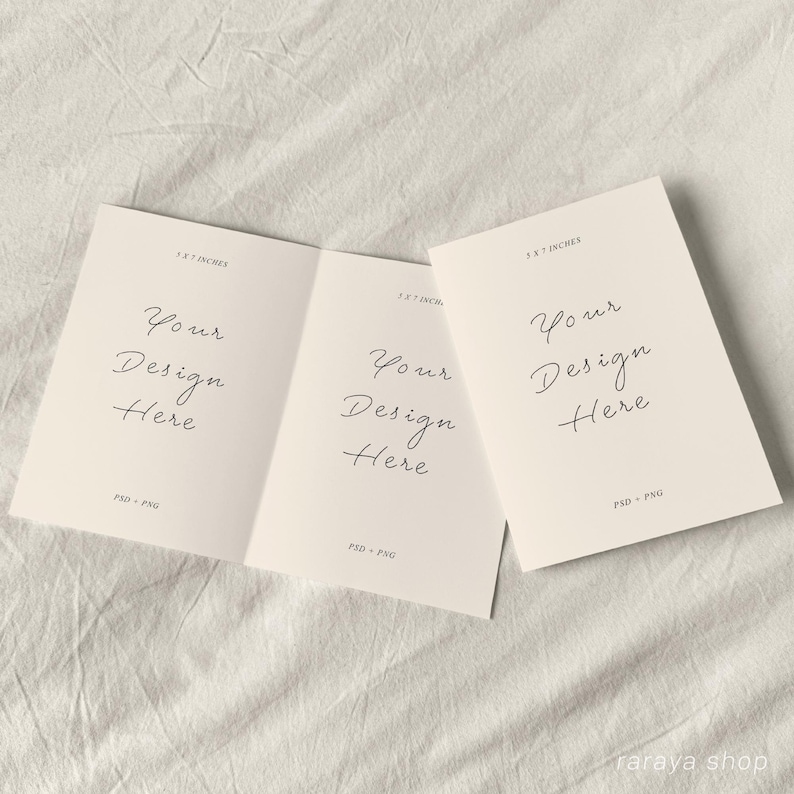 5 X 7 INCHES
Your
Design
Here
PSD + PNG
5 X 7 INCH
Your
Design
Here
PSD + PNG
5 X 7 INCHES
Your
Design
Here
PSD + PNG
raraya shop